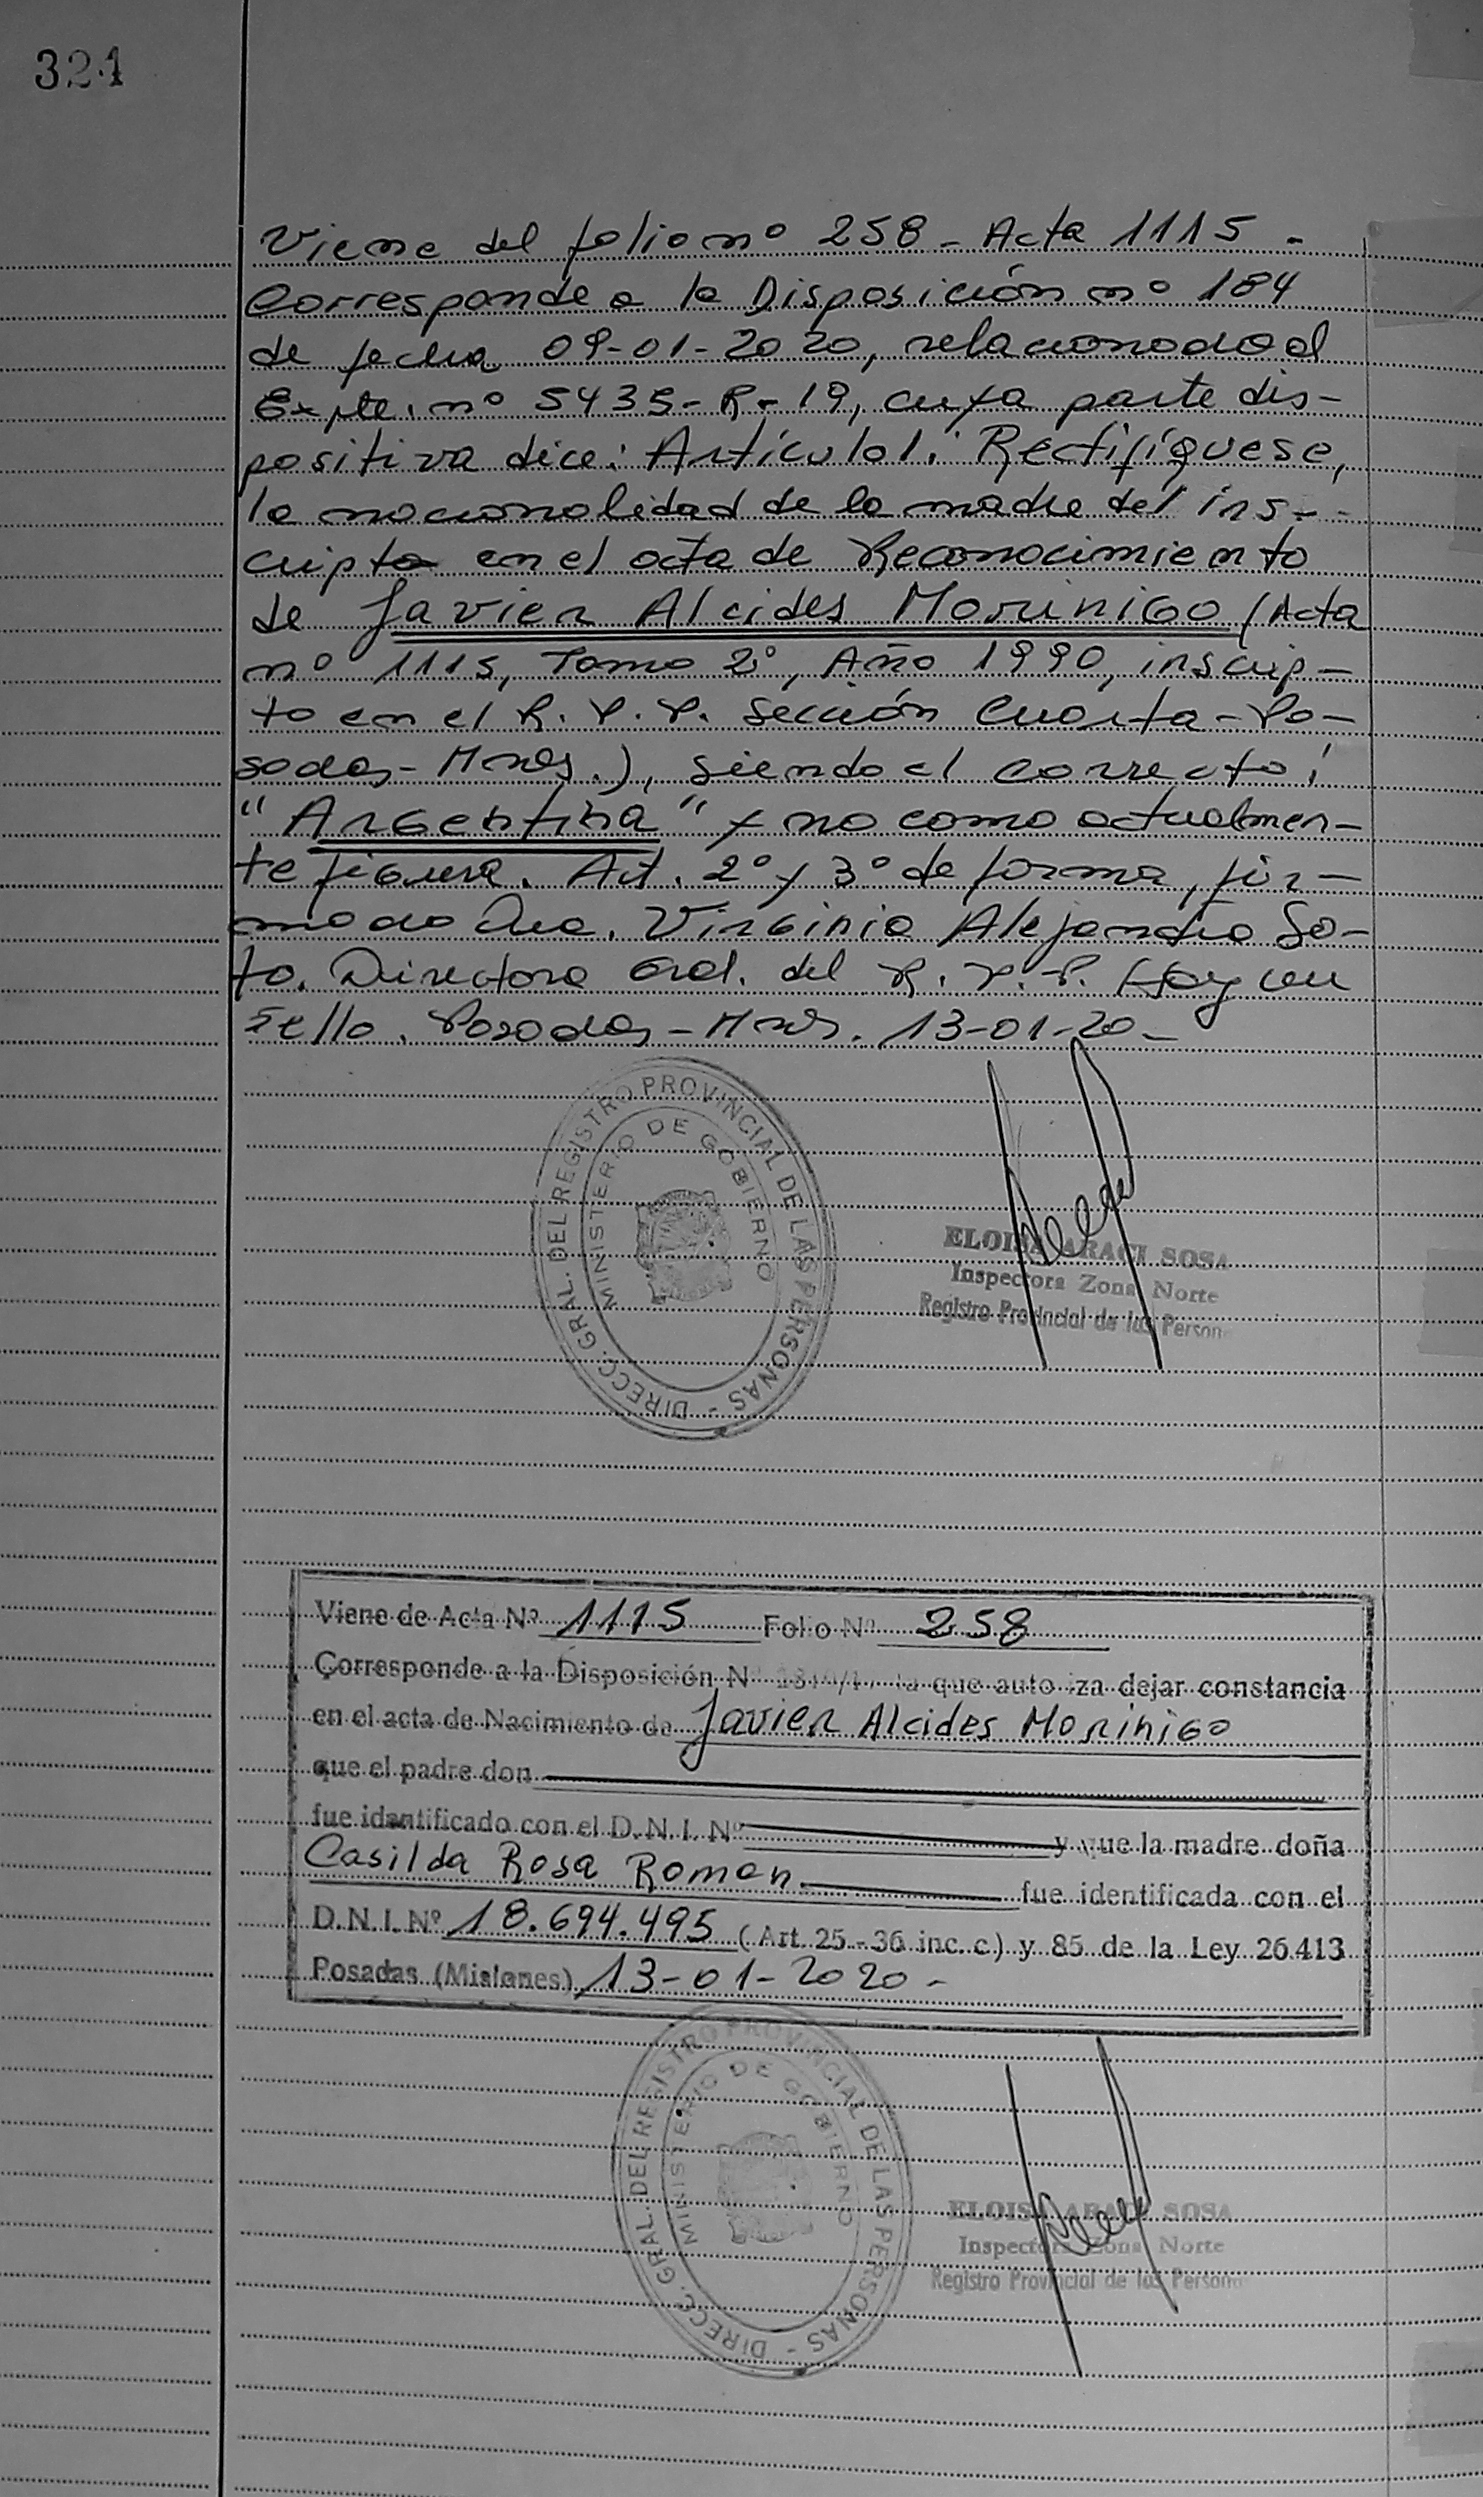 324
Viene del folio nº 258 - Acta 1115 -
Corresponde a la Disposición nº 184
de fecha 09-01-2020, relacionado al
Expte. nº 5435-R-19, cuya parte dis-
positiva dice: Artículo 1: Rectifíquese,
la nacionalidad de la madre del ins-
cripto en el acta de Reconocimiento
de Javier Alcides Morinigo (Acta
nº 1115, Tomo 2º, Año 1990, inscrip-
to en el R. P. P. Sección Cuarta - Po-
sadas - Mnes.), siendo el correcto:
"Argentina" y no como actualmen-
te figura. Art. 2º y 3º de forma, fir-
mado Dra. Virginia Alejandra So-
to. Directora Gral. del R. P. P. Hay un
sello. Posadas - Mnes. 13-01-20 -
DIRECC. GRAL. DEL REGISTRO PROVINCIAL DE LAS PERSONAS -
MINISTERIO DE GOBIERNO
ELOISA ARACI SOSA
Inspectora Zona Norte
Registro Provincial de las Person
Viene de Acta Nº 1115 Folio Nº 258
Corresponde a la Disposición Nº la que autoriza dejar constancia
en el acta de Nacimiento de Javier Alcides Morinigo
que el padre don
fue identificado con el D.N.I. Nº y que la madre doña
Casilda Rosa Roman fue identificada con el
D.N.I. Nº 18.694.495 (Art. 25 - 36 inc. c) y 85 de la Ley 26.413
Posadas (Misiones) 13-01-2020 -
DIRECC. GRAL. DEL REGISTRO PROVINCIAL DE LAS PERSONAS -
MINISTERIO DE GOBIERNO
ELOISA ARACI SOSA
Inspectora Zona Norte
Registro Provincial de las Persona